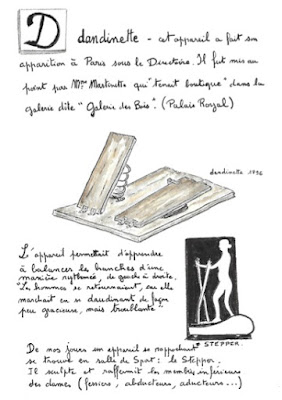 D
dandinette - cet appareil a fait son
apparition à Paris sous le Directoire. Il fut mis au
point par Mme Martinette qui "tenait boutique" dans la
galerie dite "Galerie des Bois". (Palais Royal)
dandinette 1796
L'appareil permettait d'apprendre
à balancer les hanches d'une
manière rythmée, de gauche à droite.
"Les hommes se retournaient, car elle
marchait en se daudinant de façon
peu gracieuse, mais troublante"
LE STEPPER.
De nos jours un appareil se rapprochant
se trouve en salle de Sport : le Stepper.
Il sculpte et raffermit les membres inférieurs
des dames (fessiers, abducteurs, aducteurs...)